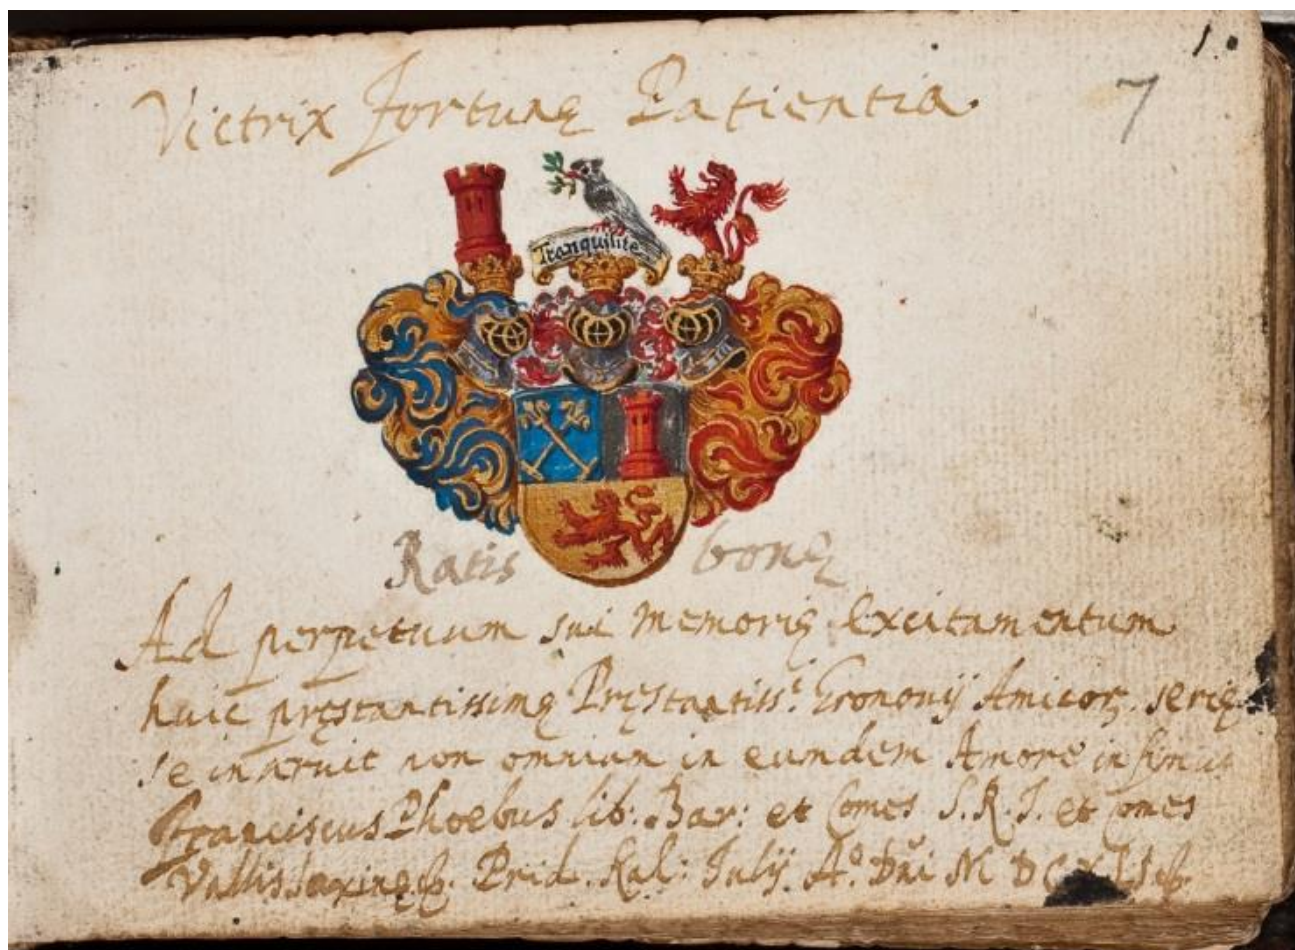 1.
7
Victrix fortunę Patientia.
Tranquilite
Ratis bonę
Ad perpetuum sui memorię excitamentum
huic pręstantissimę Pręstantiss. Gronovij Amicor. serię
se inseruit non omnium in eumdem Amore infimus
Franciscus Phoebus lib: Bar: et Comes S. R. I. et Comes
Prid. Kal: Julij. Aº. Dñi